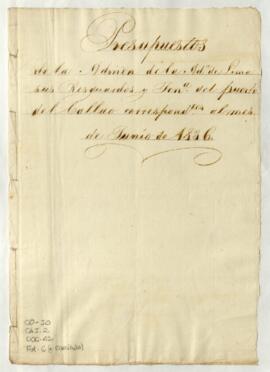 Presupuestos
de la Admon de la Ad.ª de Lima
sus Resguardos y Ten.ª del puerto
del Callao correspond.tes al mes
de Junio de 1836.
OD-30
CAJ. 2
DOC. 62
Fol. 6 (+ carátula)